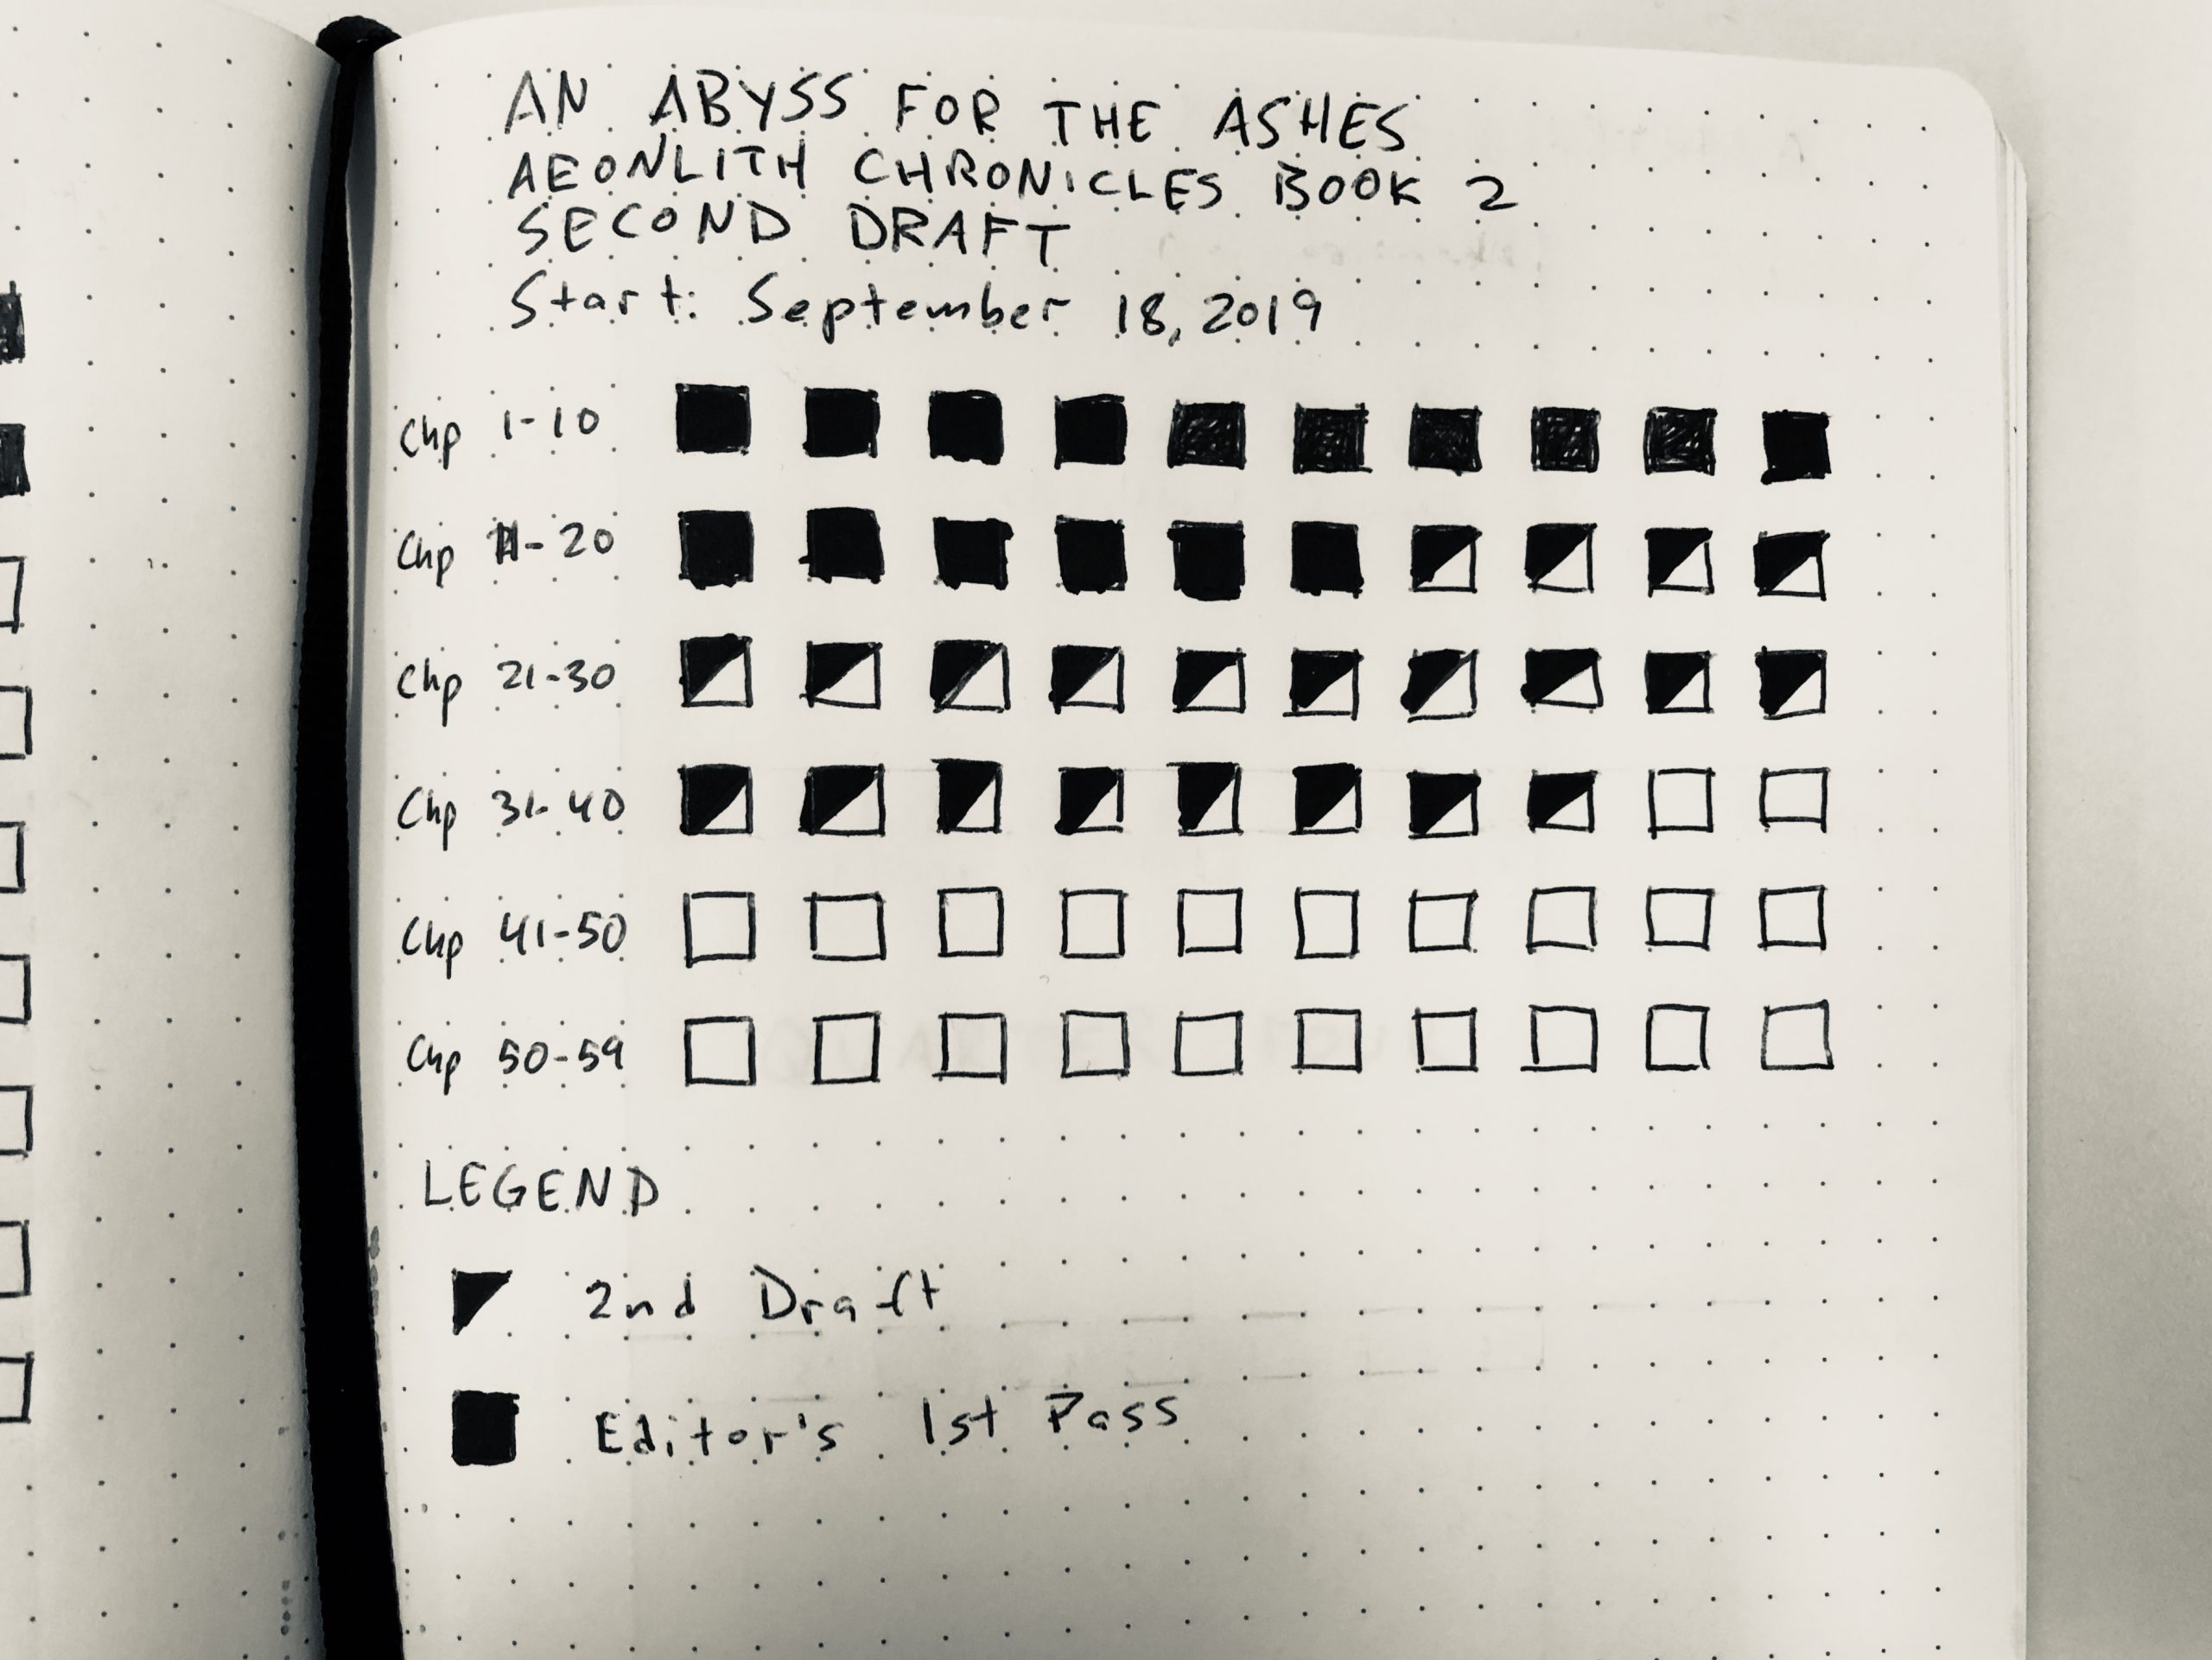 AN ABYSS FOR THE ASHES
AEONLITH CHRONICLES BOOK 2
SECOND DRAFT
Start: September 18, 2019
Chp 1-10
Chp 11-20
Chp 21-30
Chp 31-40
Chp 41-50
Chp 50-59
LEGEND
2nd Draft
Editor's 1st Pass